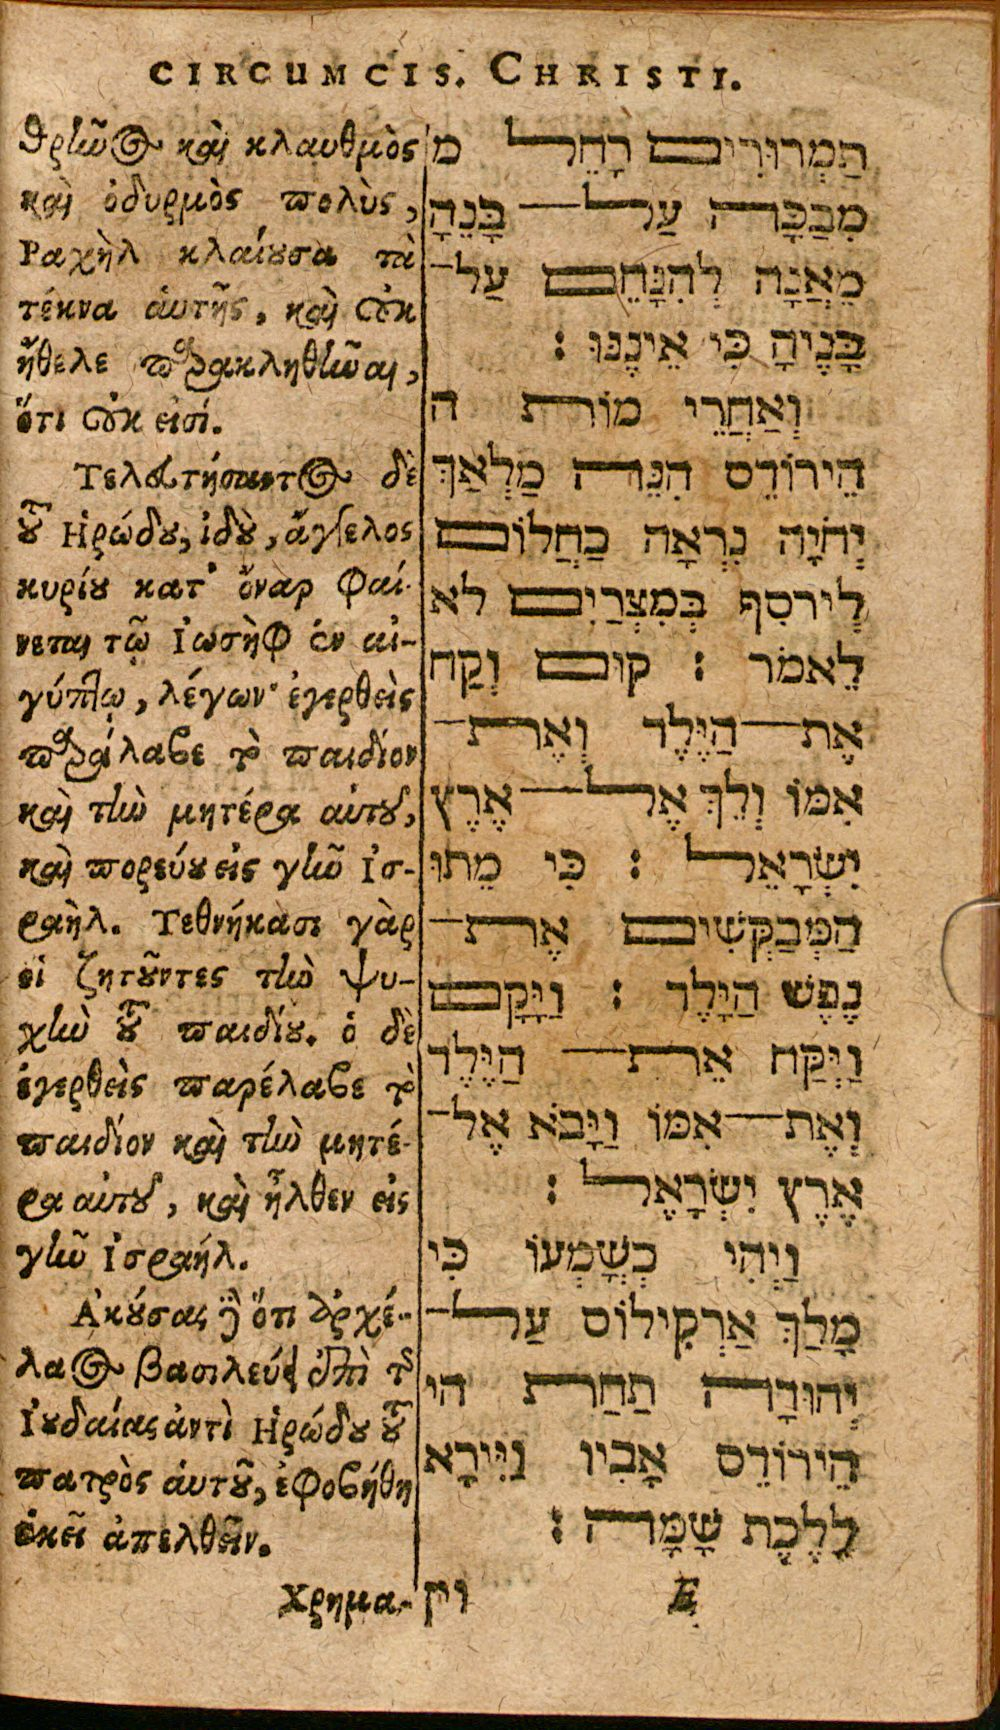 CIRCUMCIS. CHRISTI.
θρῆνος καὶ κλαυθμὸς
καὶ ὀδυρμὸς πολὺς,
Ραχὴλ κλαίουσα τὰ
τέκνα ἁυτῆς, καὶ οὐκ
ἤθελε παρακληθῆναι,
ὅτι οὐκ εἰσί.
Τελευτήσαντος δὲ
τοῦ Ηρώδου, ἰδοὺ, ἄγγελος
κυρίου κατ' ὄναρ φαί-
νεται τῷ Ἰωσὴφ ἐν αἰ-
γύπτῳ, λέγων· ἐγερθεὶς
παράλαβε τὸ παιδίον
καὶ τὴν μητέρα αὐτοῦ,
καὶ πορεύου εἰς γῆν Ἰσ-
ραήλ. Τεθνήκασι γὰρ
οἱ ζητοῦντες τὴν ψυ-
χὴν τοῦ παιδίου. ὁ δὲ
ἐγερθεὶς παρέλαβε τὸ
παιδίον καὶ τὴν μητέ-
ρα αὐτοῦ, καὶ ἦλθεν εἰς
γῆν Ἰσραήλ.
Ακούσας δὲ ὅτι ἀρχέ-
λαος βασιλεύει ἐπὶ τῆς
Ἰουδαίας ἀντὶ Ηρώδου τοῦ
πατρὸς ἁυτοῦ, ἐφοβήθη
ἐκεῖ ἀπελθεῖν.
Χρημα-
תַמְרוּרִים רָחֵל מ
מְבַכָּה עַל־ בָּנֶהָ
מֵאֲנָה לְהִנָּחֵם עַל־
בָּנֶיהָ כִּי אֵינֶנּוּ :
וְאַחֲרֵי מוֹת ה
הֵירוֹדֵס הִנֵּה מַלְאַךְ
יְהֹוָה נִרְאָה בַחֲלוֹם
לְיוֹסֵף בְּמִצְרַיִם לא
לֵאמֹר : קוּם וְקַח
אֶת־הַיֶּלֶד וְאֶת־
אִמּוֹ וְלֵךְ אֶל־אֶרֶץ
יִשְׂרָאֵל : כִּי מֵתוּ
הַמְבַקְּשִׁים אֶת־
נֶפֶשׁ הַיָּלֶד : וַיָּקָם
וַיִּקַּח אֵת־ הַיֶּלֶד
וְאֶת־אִמּוֹ וַיָּבֹא אֶל־
אֶרֶץ יִשְׂרָאֶל :
וַיְהִי כְּשָׁמְעוֹ כִּי
מָלַךְ אַרְקִילוֹס עַל־
יְהוּדָה תַחַת הי
הֵירוֹדֵס אָבִיו וַיִּירָא
לָלֶכֶת שָׁמָּה :
E
ויק